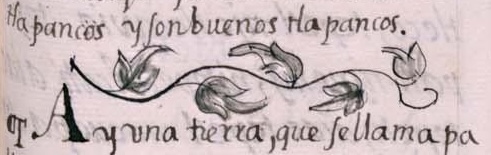 tlapancos y son buenos tlapancos.
¶ Ay vna tierra, que se llama pa